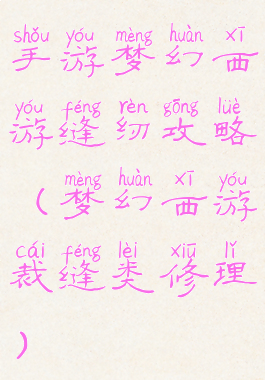 shǒu yóu mèng huàn xī
手游梦幻西
yóu féng rèn gōng lüè
游缝纫攻略
mèng huàn xī yóu
（梦幻西游
cái féng lèi xiū lǐ
裁缝类修理
）